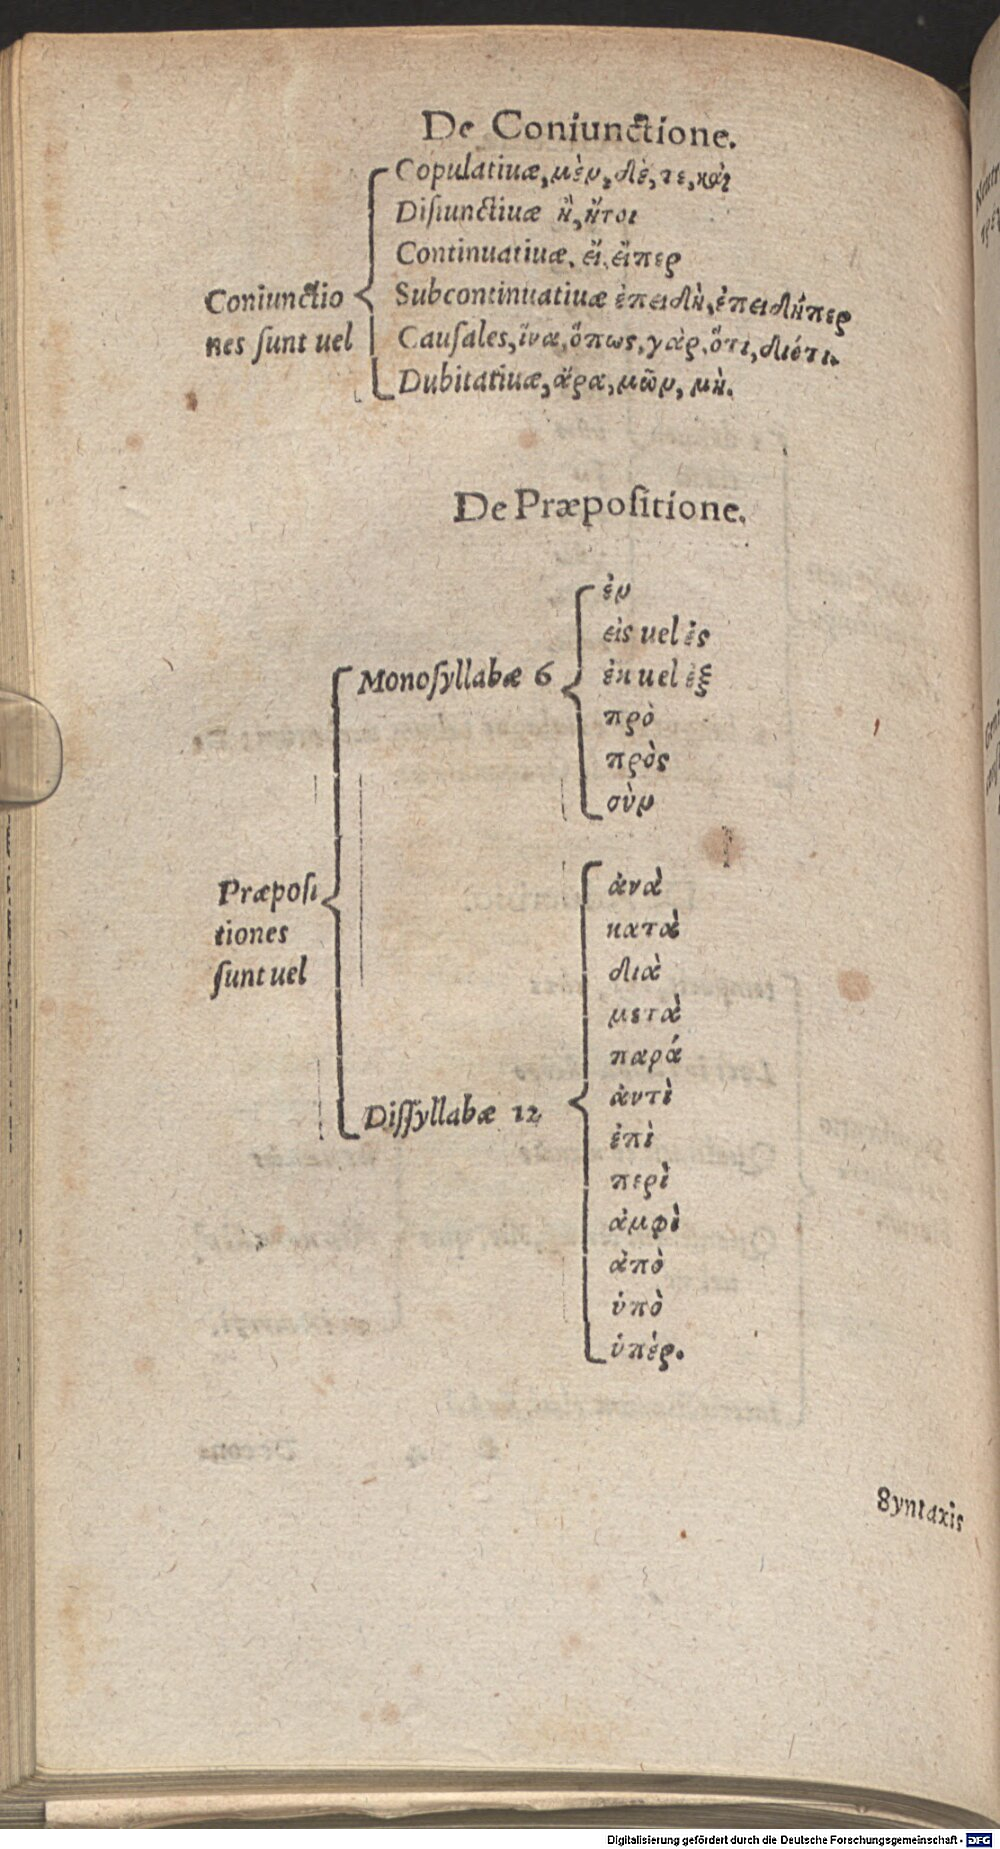 De Coniunctione.
Copulatiuæ, μὲν, δὲ, τε, καὶ
Disiunctiuæ ἢ, ἤτοι
Continuatiuæ, εἴ, εἴπερ
Coniunctio
Subcontinuatiuæ ἐπειδὴ, ἐπειδήπερ
nes ſunt uel
Cauſales, ἵνα, ὅπως, γὰρ, ὅτι, διότι.
Dubitatiuæ, ἄρα, μῶν, μὴ.
De Præpoſitione.
ἐν
εἰς uel ἐς
Monoſyllabæ 6
ἐκ uel ἐξ
πρὸ
πρὸς
σὺν
ἀνὰ
Præpoſi
κατὰ
tiones
διὰ
ſunt uel
μετὰ
παρά
ἀντὶ
Diſſyllabæ 12
ἐπὶ
περὶ
ἀμφὶ
ἀπὸ
ὑπὸ
ὑπὲρ.
Syntaxis
Digitalisierung gefördert durch die Deutsche Forschungsgemeinschaft - DFG